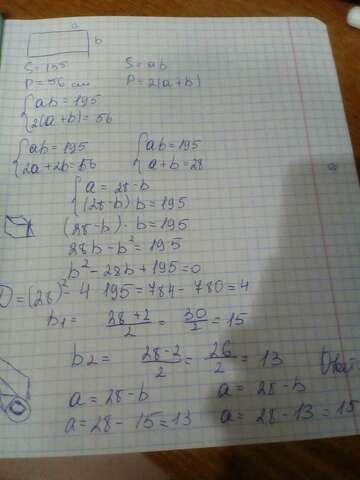 a
b
S = 195 S = ab
P = 56 см P = 2(a+b)
{ab = 195
2(a+b) = 56
{ab = 195 {ab = 195
2a+2b = 56 a+b = 28
{a = 28-b
(28-b)·b = 195
(28-b)·b = 195
28b-b² = 195
b²-28b+195=0
D=(28)²-4·195=784-780=4
b₁ = (28+2)/2 = 30/2 = 15
b₂ = (28-2)/2 = 26/2 = 13
a = 28-b a = 28-b
a=28-15=13 a = 28-13 = 15